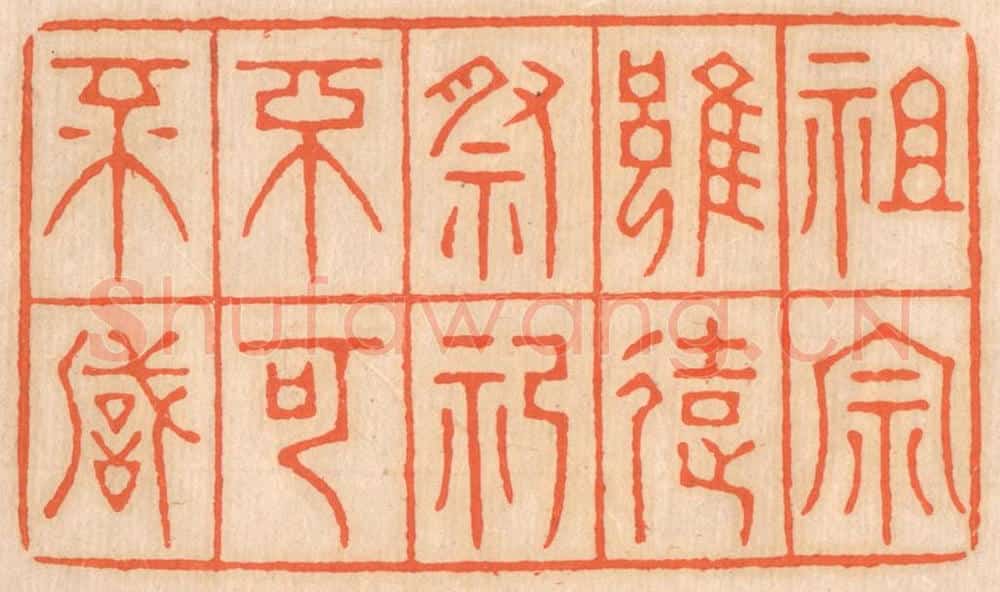 祖宗
雖遠
祭祀
不可
不誠
Shufawang.CN